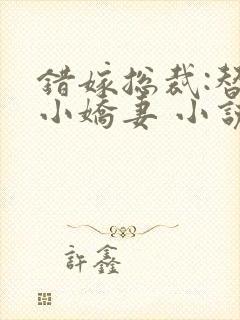 錯嫁总裁:替
小嬌妻 小說
許鑫